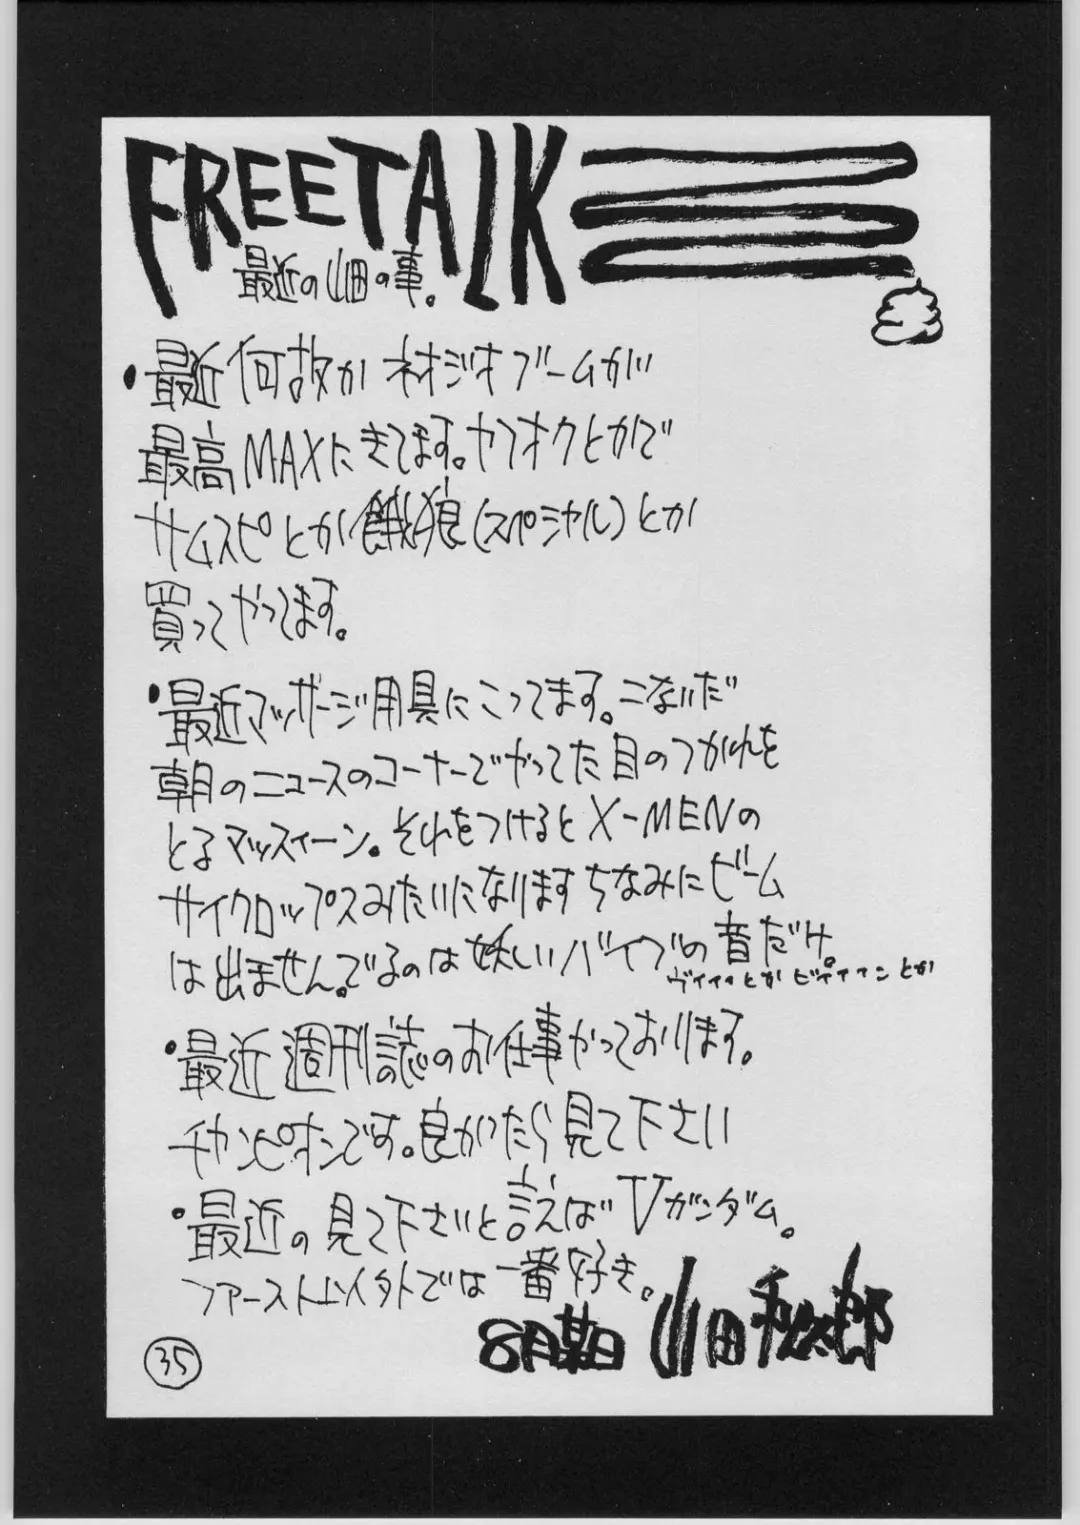 FREETALK
最近の山田の事。
・最近何故かネオジオブームが
最高MAXにきてます。ヤフオクとかで
サムスピとか餓狼(スペシャル)とか
買ってやってます。
・最近マッサージ用具にこってます。こないだ
朝のニュースのコーナーでやってた目のつかれを
とるマッスィーン。それをつけるとX-MENの
サイクロップスみたいになります ちなみにビーム
は出ません。でるのは妖しいバイブの音だけ。
ヴィィィとか ビィィィンとか
・最近週刊誌のお仕事やっております。
チャンピオンです。良かったら見て下さい
・最近の見て下さいと言えばVガンダム。
ファースト以外では一番好き。
8月某日 山田秀次郎
35